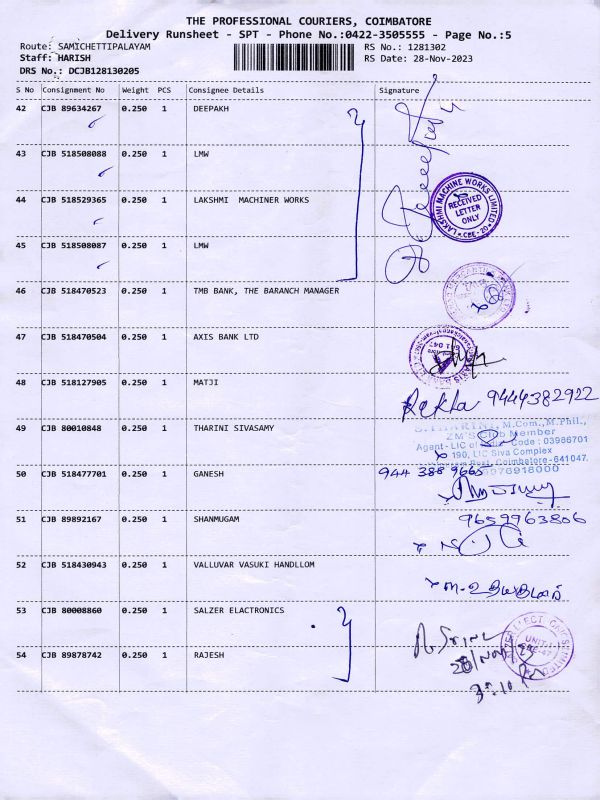 THE PROFESSIONAL COURIERS, COIMBATORE
Delivery Runsheet - SPT - Phone No.:0422-3505555 - Page No.:5
Route: SAMICHETTIPALAYAM RS No.: 1281302
Staff: HARISH RS Date: 28-Nov-2023
DRS No.: DCJB128130205
S No Consignment No Weight PCS Consignee Details Signature
42 CJB 89634267 0.250 1 DEEPAKH
43 CJB 518508088 0.250 1 LMW
44 CJB 518529365 0.250 1 LAKSHMI MACHINER WORKS
LAKSHMI MACHINE WORKS LIMITED
RECEIVED
LETTER
ONLY
CBE-20
45 CJB 518508087 0.250 1 LMW
46 CJB 518470523 0.250 1 TMB BANK, THE BARANCH MANAGER
47 CJB 518470504 0.250 1 AXIS BANK LTD
48 CJB 518127905 0.250 1 MATJI
Rekha 9444382922
49 CJB 80010848 0.250 1 THARINI SIVASAMY
S.THARINI, M.Com.,M.Phil.,
ZM'S Club Member
Agent - LIC of Code : 03986701
190, LIC Siva Complex
Coimbatore-641047.
50 CJB 518477701 0.250 1 GANESH
944 388 9665
51 CJB 89892167 0.250 1 SHANMUGAM
9659963806
52 CJB 518430943 0.250 1 VALLUVAR VASUKI HANDLLOM
53 CJB 80008860 0.250 1 SALZER ELACTRONICS
UNIT-1
54 CJB 89878742 0.250 1 RAJESH
28/NOV